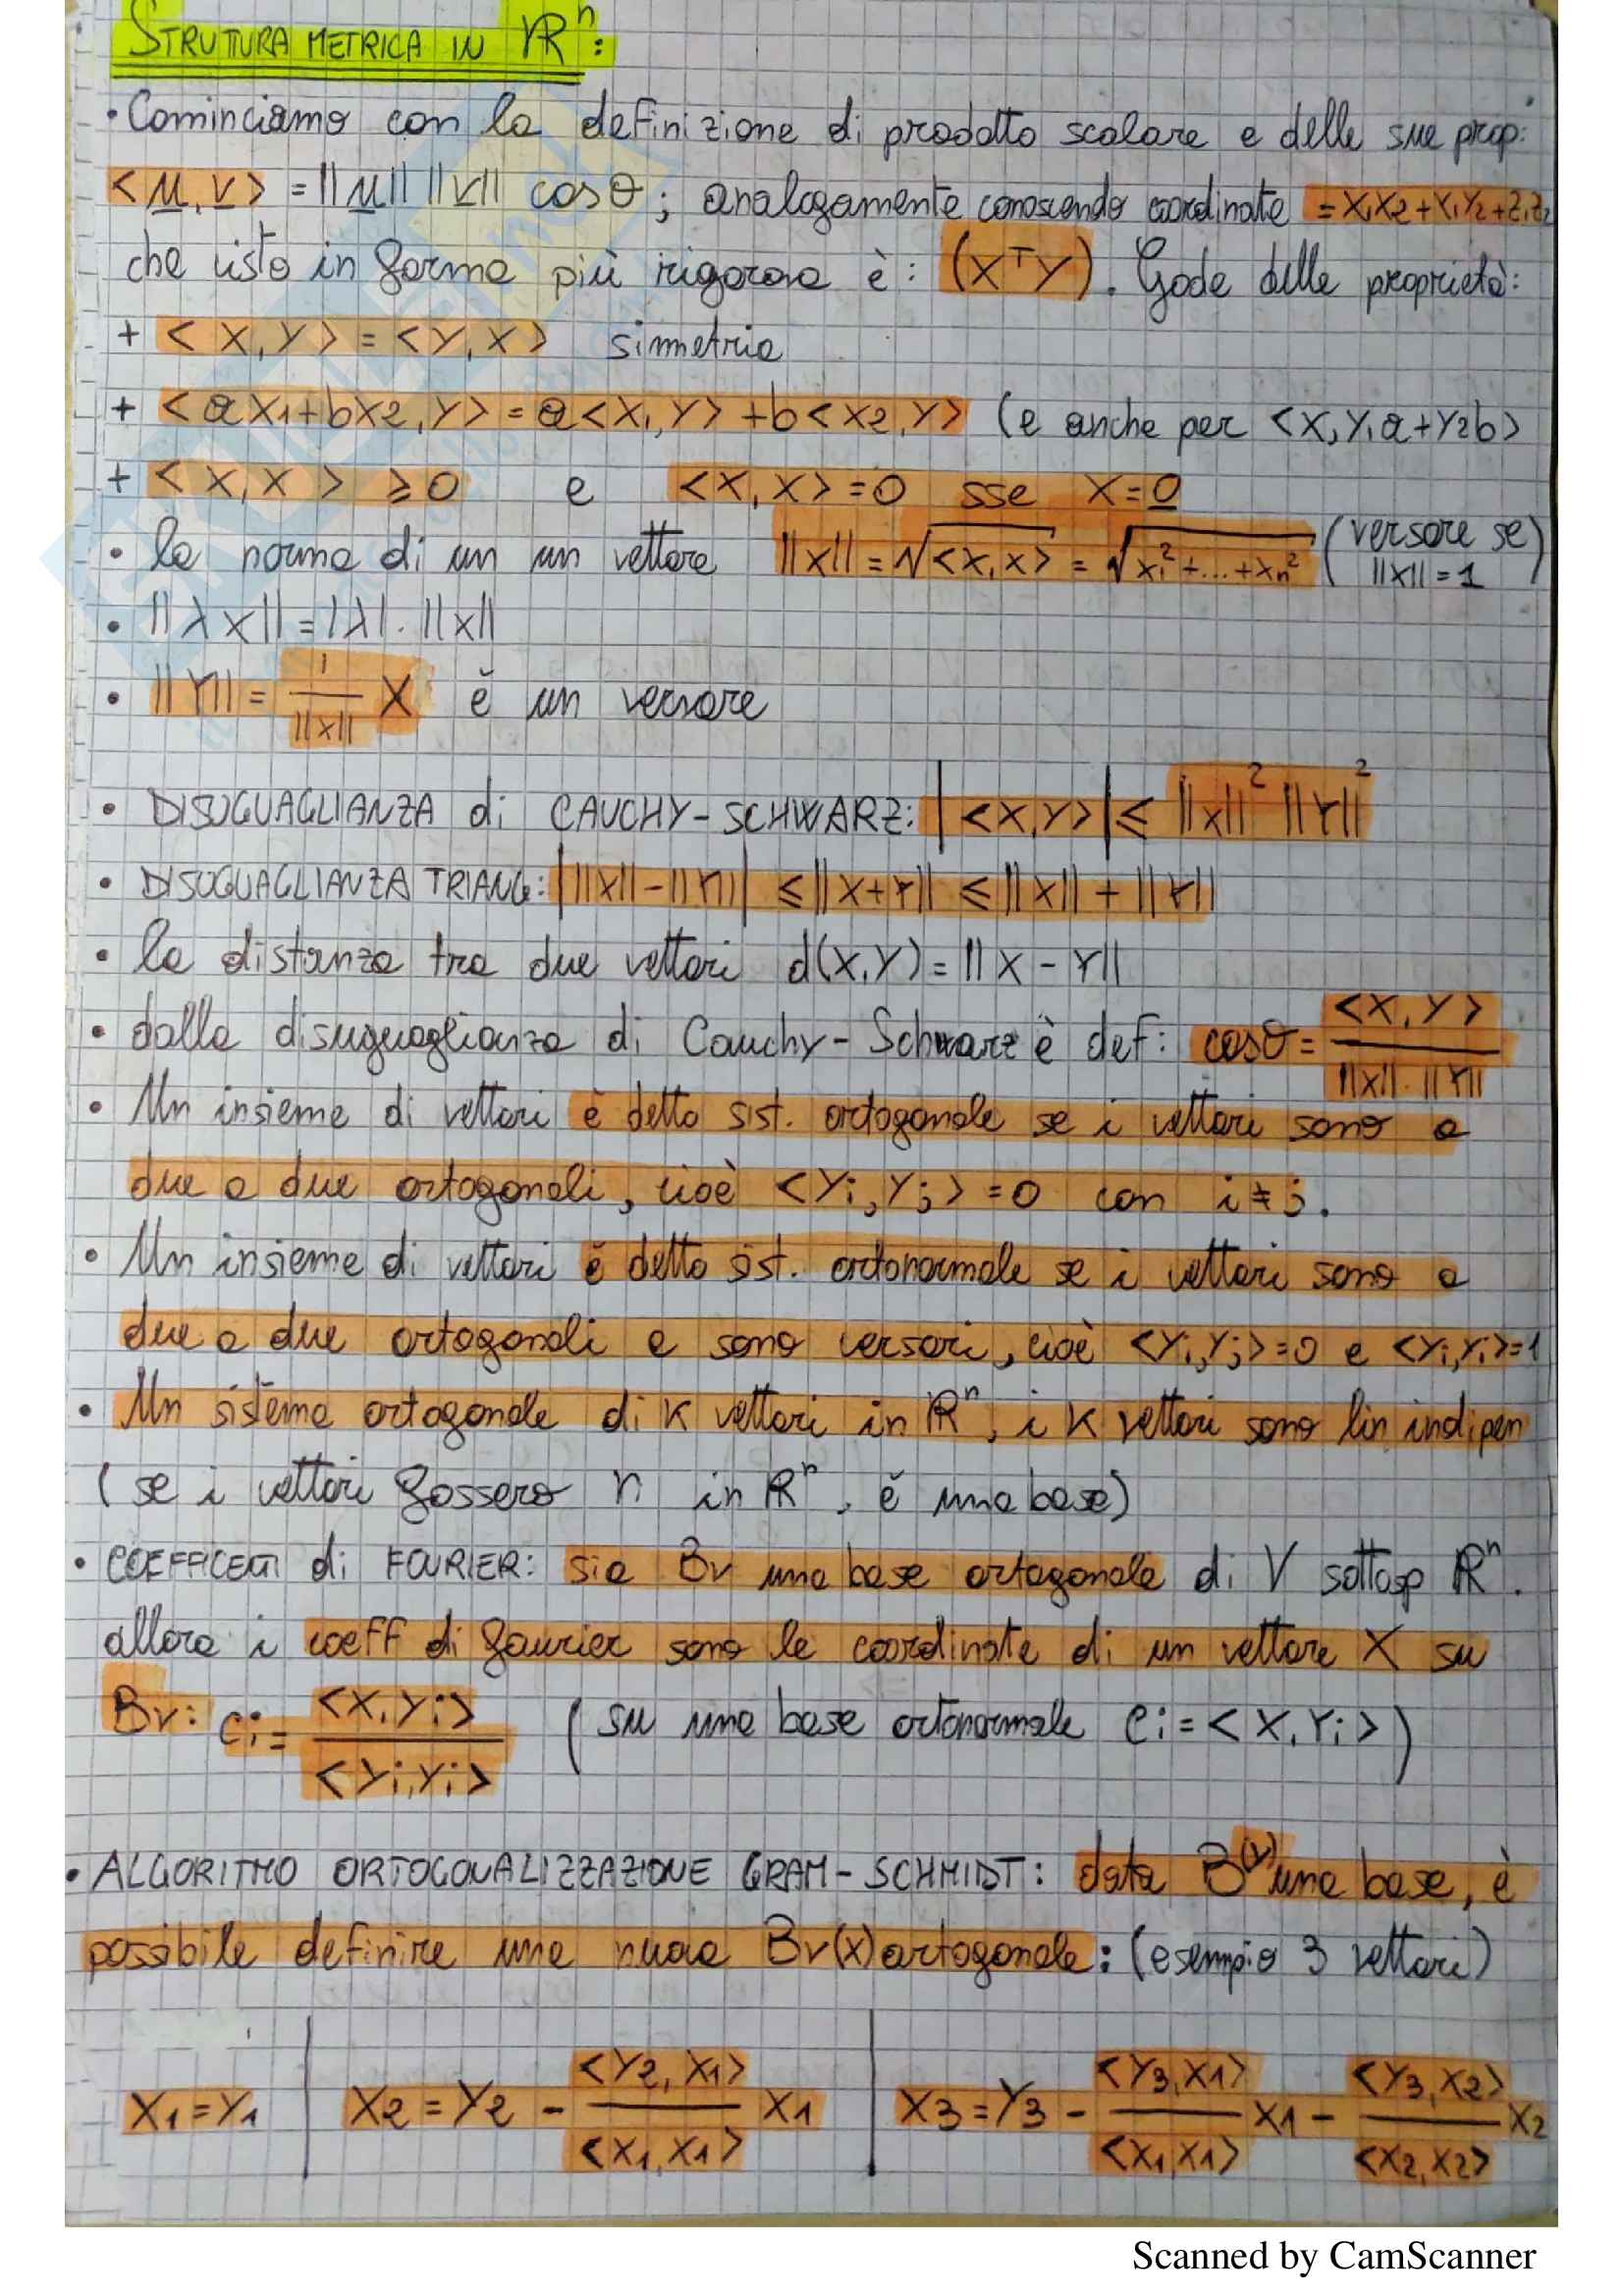 STRUTTURA METRICA IN ℝⁿ:
• Cominciamo con la definizione di prodotto scalare e delle sue prop:
<u, v> = ||u|| ||v|| cosθ ; analogamente conoscendo coordinate = X1X2+Y1Y2+Z1Z2
che visto in forma più rigorosa è: (XᵀY). Gode delle proprietà:
+ <X,Y> = <Y,X> simmetria
+ <aX1+bX2,Y> = a<X1,Y> +b<X2,Y> (e anche per <X,Y1a+Y2b>
+ <X,X> ⩾ 0 e <X,X> = 0 sse X=0
• la norma di un un vettore ||X|| = √<X,X> = √x1²+...+xn² (versore se ||X|| = 1)
• ||λX|| = |λ|. ||X||
• ||Y|| = 1/||X|| X è un versore
• DISUGUAGLIANZA di CAUCHY-SCHWARZ: |<X,Y>| ⩽ ||X||² ||Y||²
• DISUGUAGLIANZA TRIANG: | ||X|| - ||Y|| | ⩽ ||X+Y|| ⩽ ||X|| + ||Y||
• la distanza tra due vettori d(X,Y) = ||X - Y||
• dalla disuguaglianza di Cauchy-Schwarz è def: cosθ = <X,Y> / ||X||. ||Y||
• Un insieme di vettori è detto sist. ortogonale se i vettori sono a
due a due ortogonali, cioè <Yi,Yj> = 0 con i ≠ j.
• Un insieme di vettori è detto sist. ortonormale se i vettori sono a
due a due ortogonali e sono versori, cioè <Yi,Yj>=0 e <Yi,Yi>=1
• Un sistema ortogonale di K vettori in ℝⁿ, i K vettori sono lin indipen
(se i vettori fossero n in ℝⁿ, è una base)
• COEFFICENTI di FOURIER: sia Bv una base ortogonale di V sottosp ℝⁿ.
allora i coeff di fourier sono le coordinate di un vettore X su
Bv: ci = <X,Yi> / <Yi,Yi> (su una base ortonormale ci = <X,Yi>)
• ALGORITMO ORTOGONALIZZAZIONE GRAM-SCHMIDT: data B(Y) una base, è
possibile definire una nuova Bv(X) ortogonale: (esempio 3 vettori)
X1 = Y1 | X2 = Y2 - <Y2,X1> / <X1,X1> X1 | X3 = Y3 - <Y3,X1> / <X1,X1> X1 - <Y3,X2> / <X2,X2> X2
Scanned by CamScanner